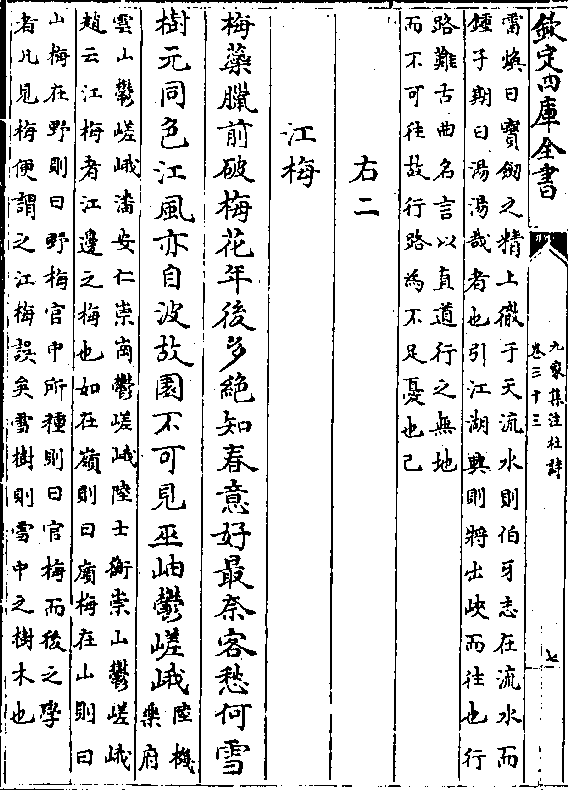 欽定四庫全書
九家集注杜詩
卷三十三
七
雷煥曰寶劒之精上徹于天流水則伯牙志在流水而
鍾子期曰湯湯哉者也引江湖興則將出峽而往也行
路難古曲名言以直道行之無地
而不可往故行路為不足憂也已
右二
江梅
梅蘂臘前破梅花年後多絶知春意好最奈客愁何雪
樹元同色江風亦自波故園不可見巫岫鬱嵯峨陸機
樂府
雲山鬱嵯峨潘安仁崇崗鬱嵯峨陸士衡崇山鬱嵯峨
趙云江梅者江邊之梅也如在嶺則曰庾梅在山則曰
山梅在野則曰野梅官中所種則曰官梅而後之學
者凡見梅便謂之江梅誤矣雪樹則雪中之樹木也